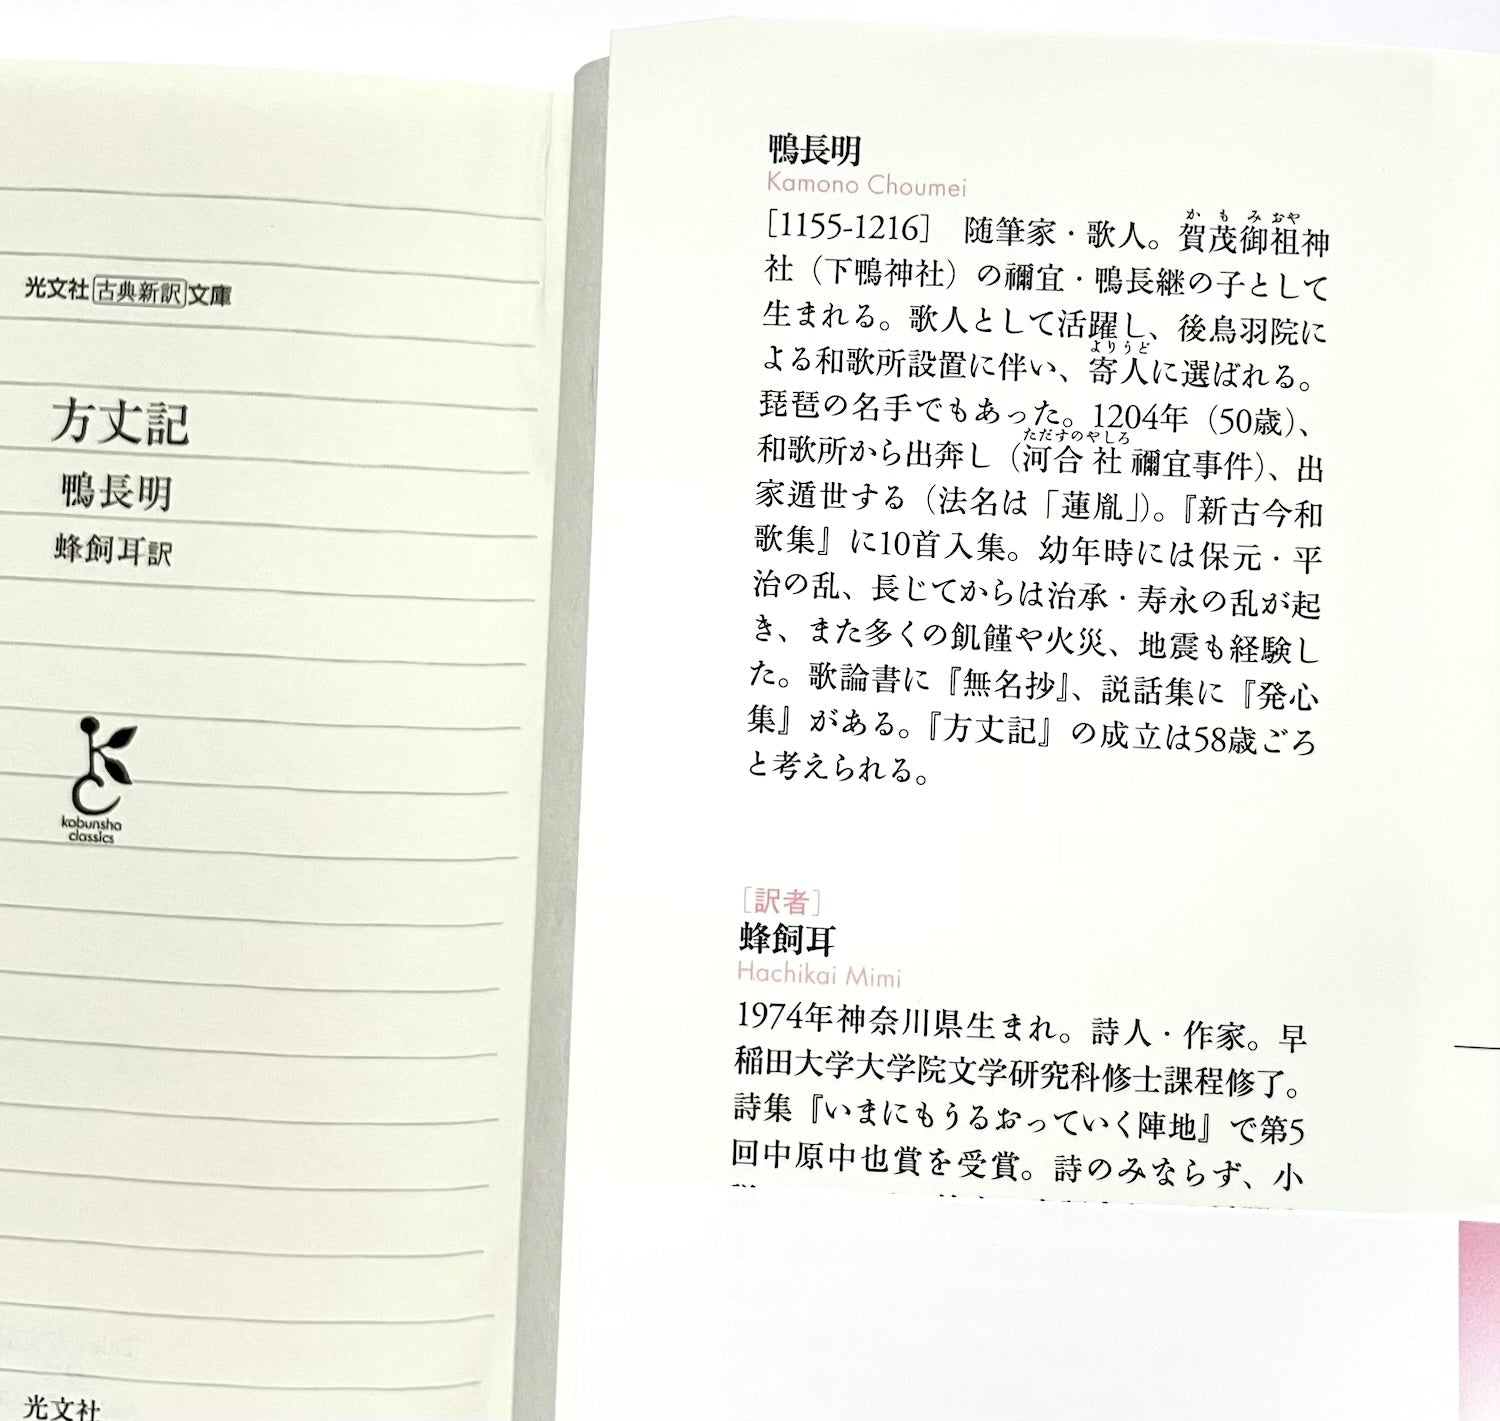 光文社古典新訳文庫
方丈記
鴨長明
蜂飼耳訳
kobunsha
classics
光文社
鴨長明
Kamono Choumei
［1155-1216］　随筆家・歌人。賀茂御祖神
かもみおや
社（下鴨神社）の禰宜・鴨長継の子として
生まれる。歌人として活躍し、後鳥羽院に
よる和歌所設置に伴い、寄人に選ばれる。
よりうど
琵琶の名手でもあった。1204年（50歳）、
和歌所から出奔し（河合社禰宜事件）、出
ただすのやしろ
家遁世する（法名は「蓮胤」）。『新古今和
歌集』に10首入集。幼年時には保元・平
治の乱、長じてからは治承・寿永の乱が起
き、また多くの飢饉や火災、地震も経験し
た。歌論書に『無名抄』、説話集に『発心
集』がある。『方丈記』の成立は58歳ごろ
と考えられる。
［訳者］
蜂飼耳
Hachikai Mimi
1974年神奈川県生まれ。詩人・作家。早
稲田大学大学院文学研究科修士課程修了。
詩集『いまにもうるおっていく陣地』で第5
回中原中也賞を受賞。詩のみならず、小